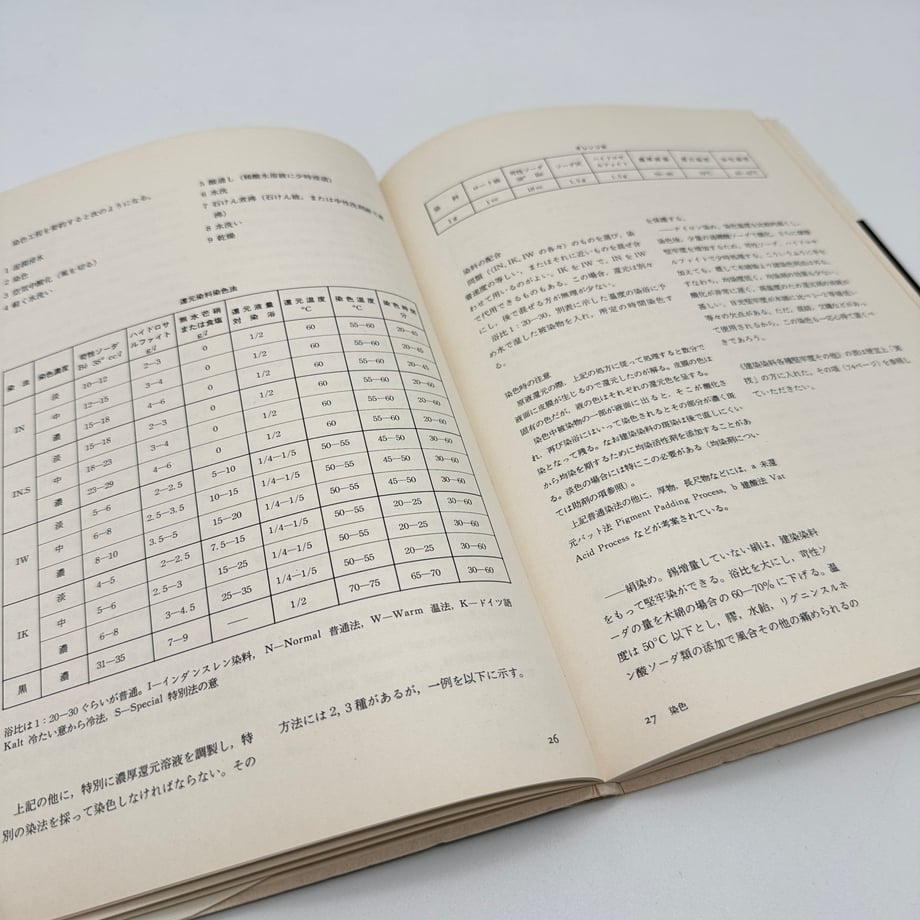 染色工程を要約すると次のようになる。
1 湿潤浸水
2 染色
3 空気中酸化(風を切る)
4 軽く水洗い
5 酸通し(稀酸水溶液に少時浸漬)
6 水洗
7 石けん煮沸(石けん液、または中性洗剤液で煮沸)
8 水洗い
9 乾燥
還元染料染色法
染法 染色濃度 苛性ソーダ Bé 35° cc/l ハイドロサルファイト g/l 無水芒硝または食塩 g/l 還元液量対染浴 還元温度 ℃ 染色温度 ℃ 染色時間 分
IN 淡 10—12 2—3 0 1/2 60 55—60 20—45
中 12—15 3—4 0 1/2 60 55—60 20—45
濃 15—18 4—6 0 1/2 60 55—60
IN.S 淡 15—18 2—3 0 1/2 60 55—60
中 18—23 3—4 0 1/2 60 55—60
濃 23—29 4—6
IW 淡 5—6 2—2.5 5—10 1/4—1/5 50—55 45—50 30—60
中 6—8 2.5—3.5 10—15 1/4—1/5 50—55 45—50 30—60
濃 8—10 3.5—5 15—20 1/4—1/5 50—55 45—50 30—60
IK 淡 4—5 2—2.5 7.5—15 1/4—1/5 50—55 20—25 30—60
中 5—6 2.5—3 15—25 1/4—1/5 50—55 20—25 30—60
濃 6—8 3—4.5 25—35 1/4—1/5 50—55 20—25 30—60
黒 濃 31—35 7—9 — 1/2 70—75 65—70 30—60
浴比は1:20—30ぐらいが普通。I—インダンスレン染料, N—Normal 普通法, W—Warm 温法, K—ドイツ語
Kalt 冷たい意から冷法, S—Special 特別法の意
上記の他に, 特別に濃厚還元溶液を調製し, 特
別の染法を採って染色しなければならない。その
方法には2, 3種があるが, 一例を以下に示す。
26
オレンジ色
染料 ロート油 苛性ソーダ ソーダ灰 ハイドロサルファイト
染料の配合
同類(IN, IK, IW の各々)のものを選び, 染
着速度の等しい, またはそれに近いものを混ぜ合
わせて用いるのがよい。IK を IW で, IN を IW
で代用できるものもある。この場合, 還元は別々
にし, 後で混ぜる方が無理が少ない。
浴比1:20—30, 別表に示した温度の染浴に予
め水で湿した被染物を入れ, 所定の時間染す
る。
染色時の注意
原液還元の際, 上記の処方に従って処理すると数分で
液面に皮膜が生じるので還元したのが解る。皮膜の色は
固有の色だが, 液の色はそれぞれの還元色を呈する。
染色中被染物の一部が液面に出ると, そこが酸化さ
れ, 再び染浴にはいって染色されるとその部分が濃く斑
染となって残る。なお建染染料の斑染は後で直しにくい
から均染を期するために均染活性剤を添加することがあ
る。淡色の場合には特にこの必要がある(均染剤につい
ては助剤の項参照)。
上記普通染法の他に, 厚物, 長尺物などには, a 未還
元パット法 Pigment Padding Process, b 建酸法 Vat
Acid Process などが考案されている。
——絹染め。錫増量していない絹は, 建染染料
をもって堅牢染ができる。浴比を大にし, 苛性ソ
ーダの量を木綿の場合の60—70%に下げる。温
度は50℃以下とし, 膠, 水飴, リグニンスルホ
ン酸ソーダ類の添加で風合その他の痛められるの
を保護する。
——ナイロン染め。
使用されるから, この染色も一応心得て置くべ
きであろう。
の項(74ページ)を参照し
ていただきたい。
27 染色